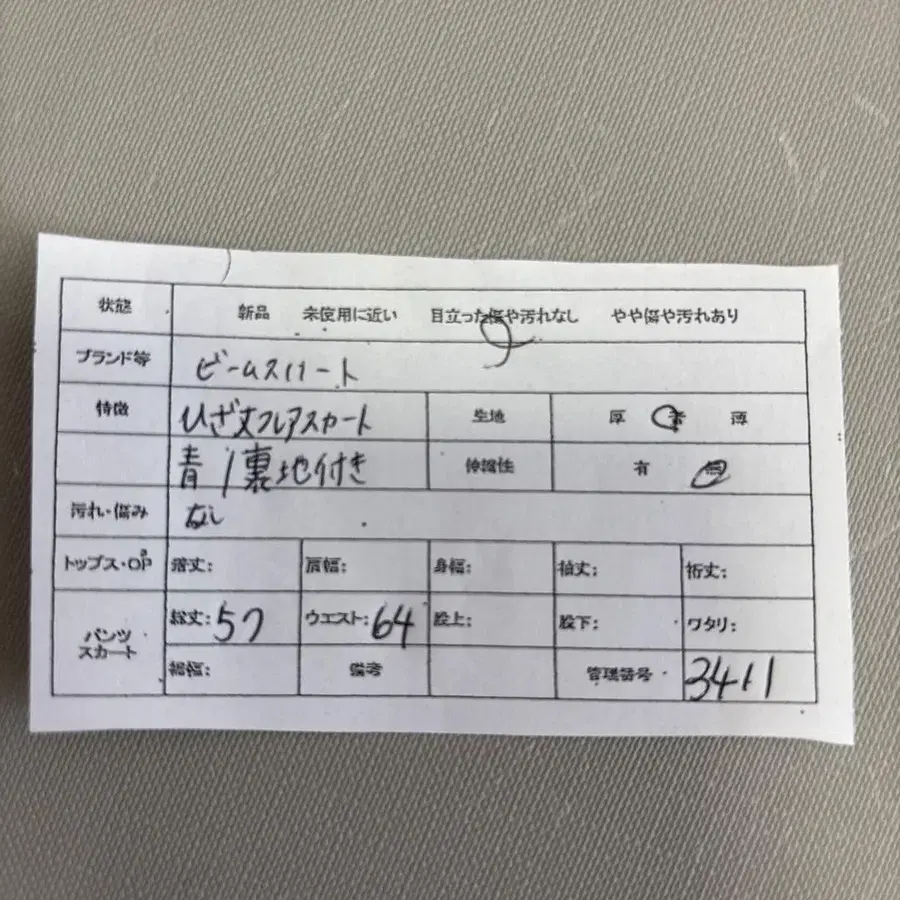 状態 新品 未使用に近い 目立った傷や汚れなし やや傷や汚れあり
ブランド等 ビームスハート
特徴 ひざ丈フレアスカート 生地 厚 普 薄
青/裏地付き 伸縮性 有 無
汚れ・傷み なし
トップス・OP 着丈: 肩幅: 身幅: 袖丈: 裄丈:
パンツ スカート 総丈:57 ウエスト:64 股上: 股下: ワタリ:
裾幅: 備考 管理番号 3411